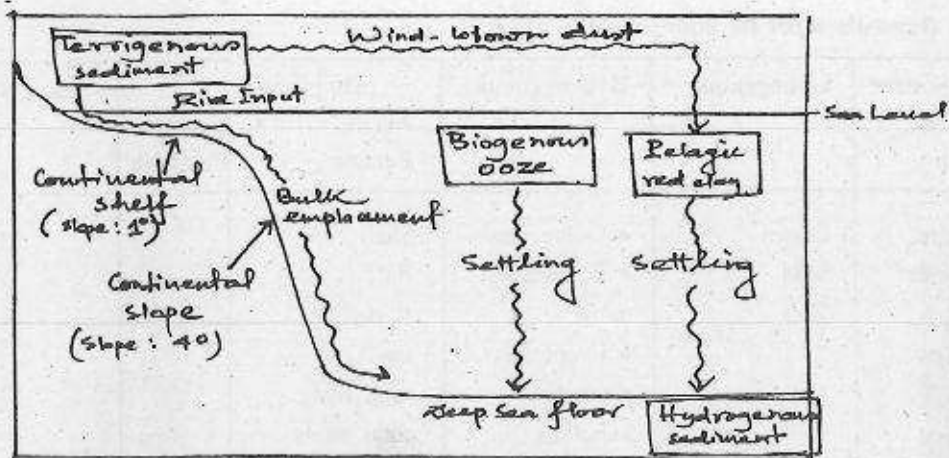 Terrigenous
sediment
Wind-blown dust
River Input
Sea Level
Continental
shelf
(slope: 1°)
Bulk
emplacement
Continental
slope
(slope: 40)
Biogenous
ooze
Settling
Pelagic
red clay
settling
Deep Sea floor
Hydrogenous
sediment